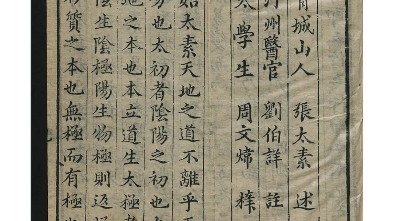 青城山人 張太素 述
州醫官 劉伯詳 註
太學生 周文煒 梓
如太素天地之道不離乎
也太初者陰陽之初也
地之本也本立道生太極
生陰極陽生物極則
質之本也無極而有極